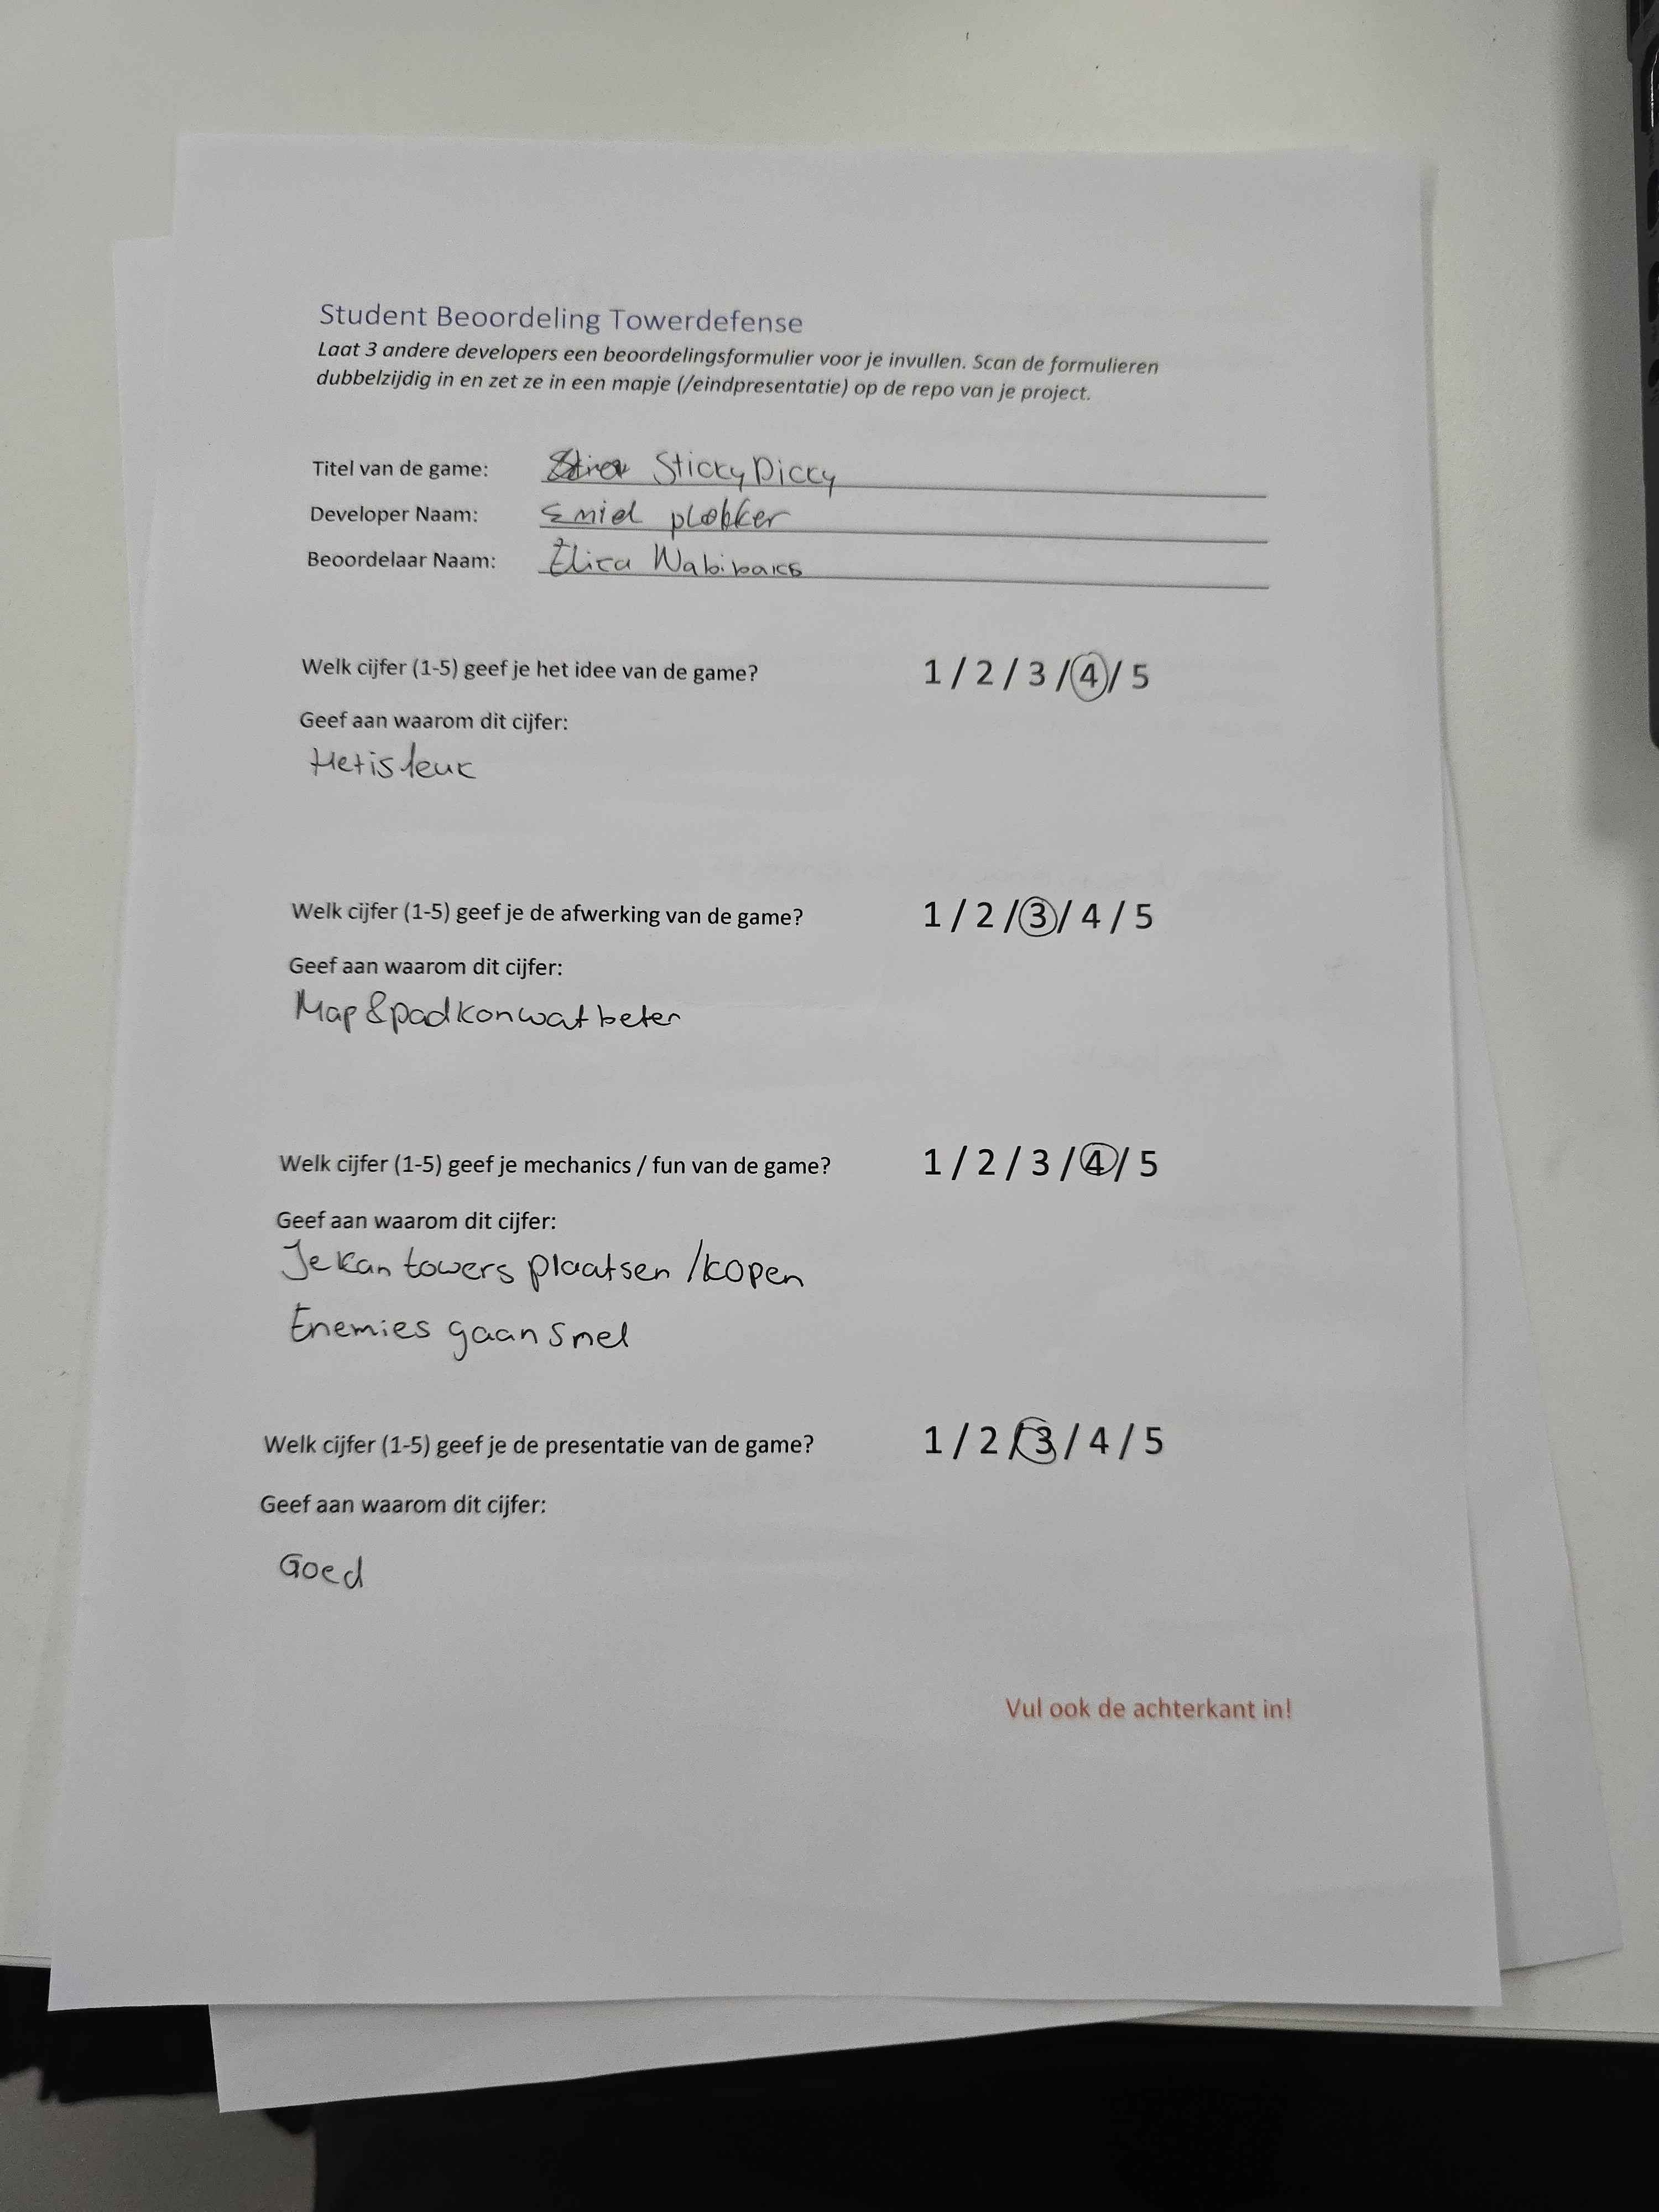 Student Beoordeling Towerdefense
Laat 3 andere developers een beoordelingsformulier voor je invullen. Scan de formulieren
dubbelzijdig in en zet ze in een mapje (/eindpresentatie) op de repo van je project.
Titel van de game: Sticky Dicky
Developer Naam: Emiel plobker
Beoordelaar Naam:
Welk cijfer (1-5) geef je het idee van de game? 1 / 2 / 3 / 4 / 5
Geef aan waarom dit cijfer:
Het is leuk
Welk cijfer (1-5) geef je de afwerking van de game? 1 / 2 / 3 / 4 / 5
Geef aan waarom dit cijfer:
Map & pad kon wat beter
Welk cijfer (1-5) geef je mechanics / fun van de game? 1 / 2 / 3 / 4 / 5
Geef aan waarom dit cijfer:
Je kan towers plaatsen / kopen
Enemies gaan snel
Welk cijfer (1-5) geef je de presentatie van de game? 1 / 2 / 3 / 4 / 5
Geef aan waarom dit cijfer:
Goed
Vul ook de achterkant in!